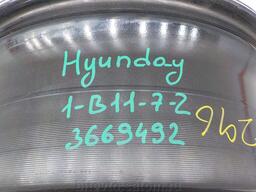 Hyunday
1-B11-7-2
3669492